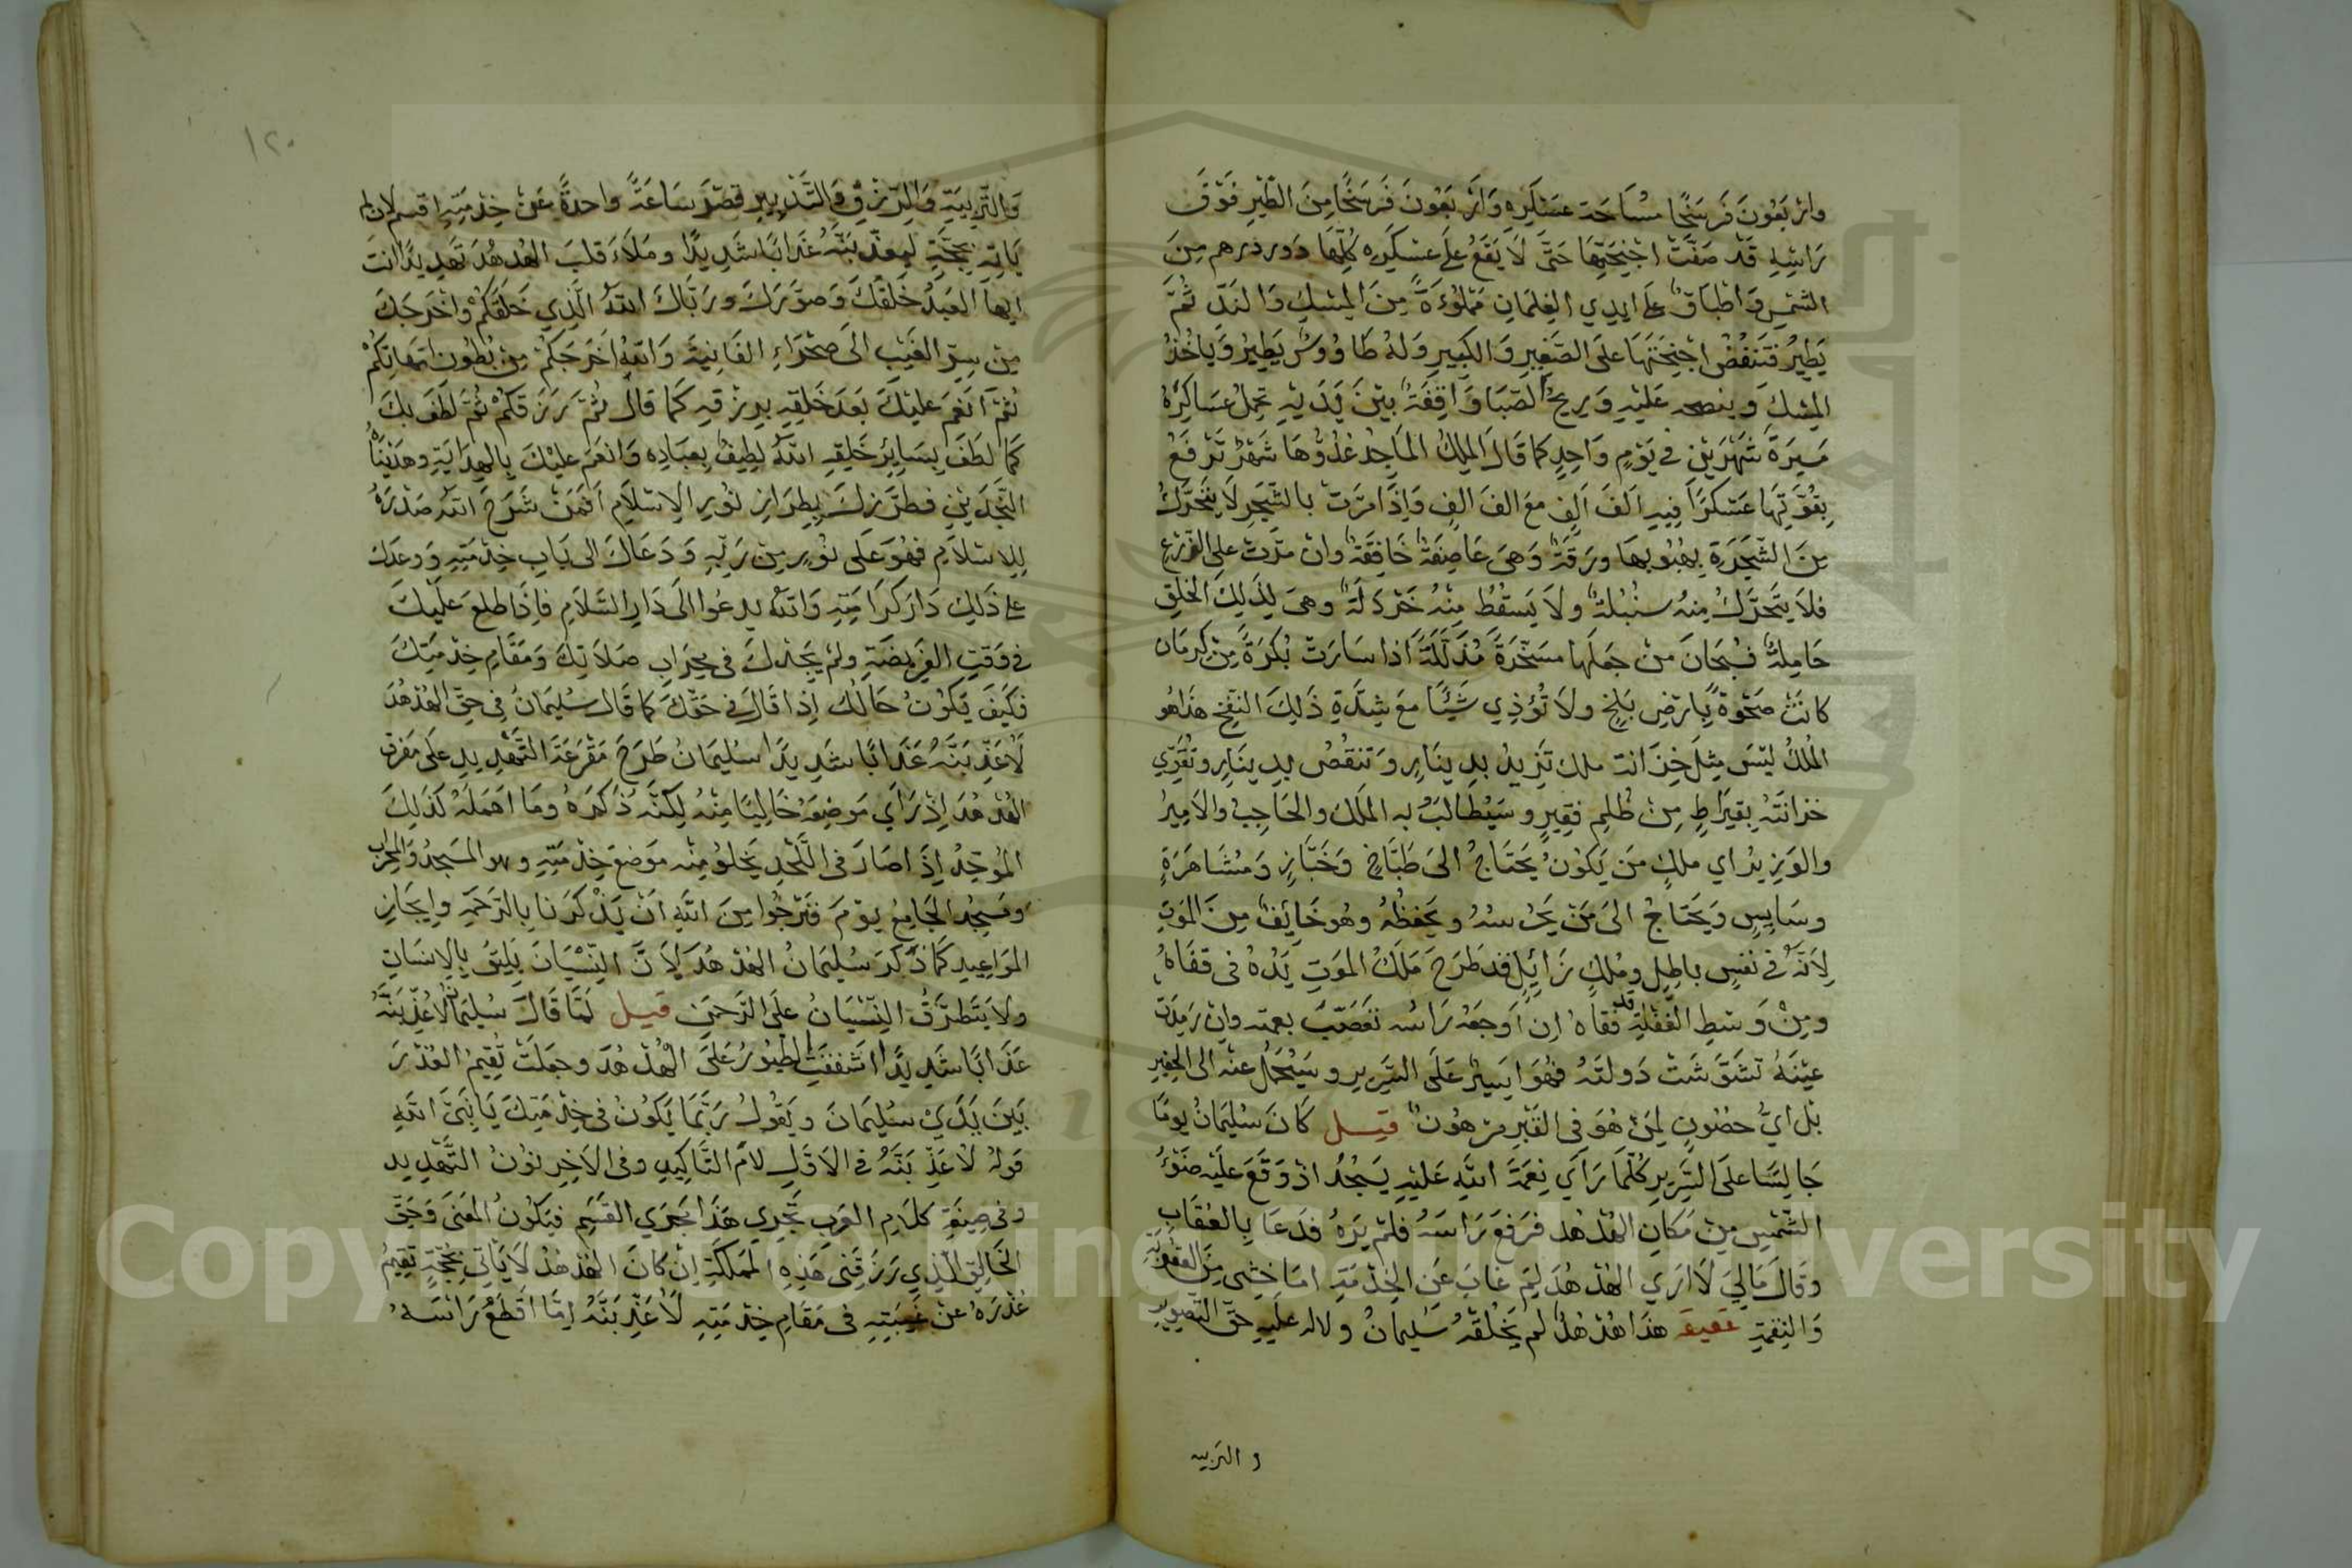 واربعون فرسخا مساحة عسكره واربعون فرسخا من الطير فوق
راسه قد صفت اجنحتها حتى لا يقع على عسكره كلها من
الشمس واطباق على ايدي الغلمان مملوءة من المسك والند ثم
يطير فتنفض اجنحتها على الصغير والكبير وله طاووس يطير وياخذ
المسك عليه وريح الصبا واقفة بين يديه تحمل عساكره
مسيرة شهرين في يوم واحد كما قال الملك الماجد غدوها شهر ترفع
بقوتها عسكرا فيه الف الف مع الف الف واذا مرت بالشجر لا يتحرك
من الشجرة بهبوبها ورقة وهى عاصفة خافقة وان مرت على الزرع
فلا يتحرك منه سنبلة ولا يسقط منه خردلة وهى لذلك الخلق
حاملة فسبحان من جعلها مسخرة مذللة اذا سارت بكرة من كرمان
كانت ضحوة بارض بلخ ولا تؤذي شيئا مع شدة ذلك النفخ هذا هو
الملك ليس مثل خزانت ملك تزيد بدينار وتنقص بدينار وتقوي
خزانته بقيراط من ظلم فقير وسيطالب به الملك والحاجب والامير
والوزير اي ملك من يكون يحتاج الى طباخ وخباز ومشاهرة
وسايس ويحتاج الى من يحرسه ويحفظه وهو خايف من الموت
لانه في نفس باطل وملك زايل قد طرح ملك الموت يده فى قفاه
ومن وسط الغفلة قد فقاه ان اوجعه راسه تعصب بعمته وان رمدت
عينه تشوشت دولته فهو اسير على السرير وسيحمل عنه الى الحفير
بل اي حصون لمن هو فى القبر مرهون قيل كان سليمان يوما
جالسا على السرير كلما راي نعمة الله عليه يسجد اذ وقع عليه ضوء
الشمس من مكان الهدهد فرفع راسه فلم يره فدعا بالعقاب
وقال مالي لا اري الهدهد لم غاب عن الخدمة اما خشى من العقوبة
والنقمة هذا هدهد لم يخلقه سليمان ولا له عليه حق التصوير
و التربيه
١٢٠
والتربية والرزق والتدبير قصر ساعة واحدة عن خدمته اقسم لان لم
ياته بحجة ليعذبنه عذابا شديدا وملاء قلب الهدهد تهديدا انت
ايها العبد خلقك وصورك ورباك الله الذي خلقكم واخرجك
من سر الغيب الى صحراء الفانية والله اخرجكم من بطون امهاتكم
ثم انعم عليك بعد خلقه برزقه كما قال ثم رزقكم ثم لطف بك
كما لطف بساير خلقه الله لطيف بعباده وانعم عليك بالهداية وهديناه
النجدين فطرزك بطراز نور الاسلام افمن شرح الله صدره
للاسلام فهو على نور من ربه ودعاك الى باب خدمته ووعدك
على ذلك دار كرامته والله يدعوا الى دار السلام فاذا طلع عليك
في وقت الفريضة ولم يجدك فى محراب صلاتك ومقام خدمتك
فكيف يكون حالك اذا قال في حقك كما قال سليمان فى حق الهدهد
لاعذبنه عذابا شديدا سليمان طرح مقرعة التهديد على مفرق
الهدهد اذ راي موضعه خاليا منه لكنه ذكره وما اهمله كذلك
الموحد اذا صار فى اللحد يخلو منه موضع خدمته وهو المسجد والمحراب
ومسجد الجامع يوم فنرجوا من الله ان يذكرنا بالرحمة وايجاز
المواعيد كما ذكر سليمان الهدهد لان النسيان يليق بالانسان
ولا يتطرق النسيان على الرحمن قيل لما قال سليمان لاعذبنه
عذابا شديدا اشفقت الطيور على الهدهد وجعلت تقيم العذر
بين يدي سليمان ويقول ربما يكون فى خدمتك يا نبي الله
قوله لاعذبنه في الاول لام التاكيد وفى الاخر نون التهديد
وفى صيغة كلام العرب تجري هذا مجري القسم فيكون المعنى وحق
الخالق الذي رزقنى هذه المملكة ان كان الهدهد لا ياتي بحجة تقيم
عذره عن غيبته فى مقام خدمته لاعذبنه اما اقطع راسه
Copyright © King Saud University